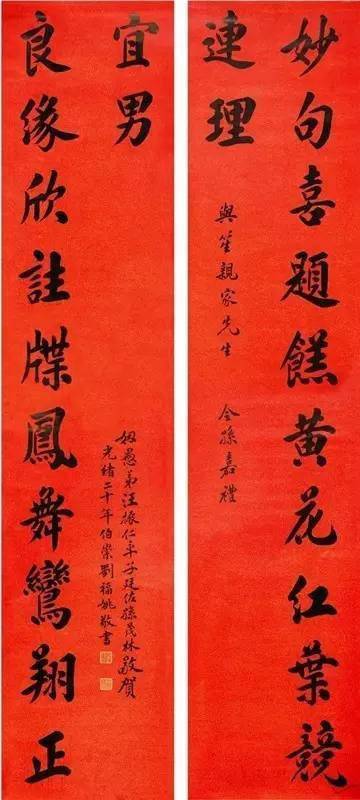 妙句喜題餻黄花紅葉競
連理
與笙親家先生 令孫嘉禮
良緣欣註牒鳳舞鸞翔正
宜男
姻愚弟汪振仁率子廷佐孫茂林敬賀
光緒二十年伯崇劉福姚敬書